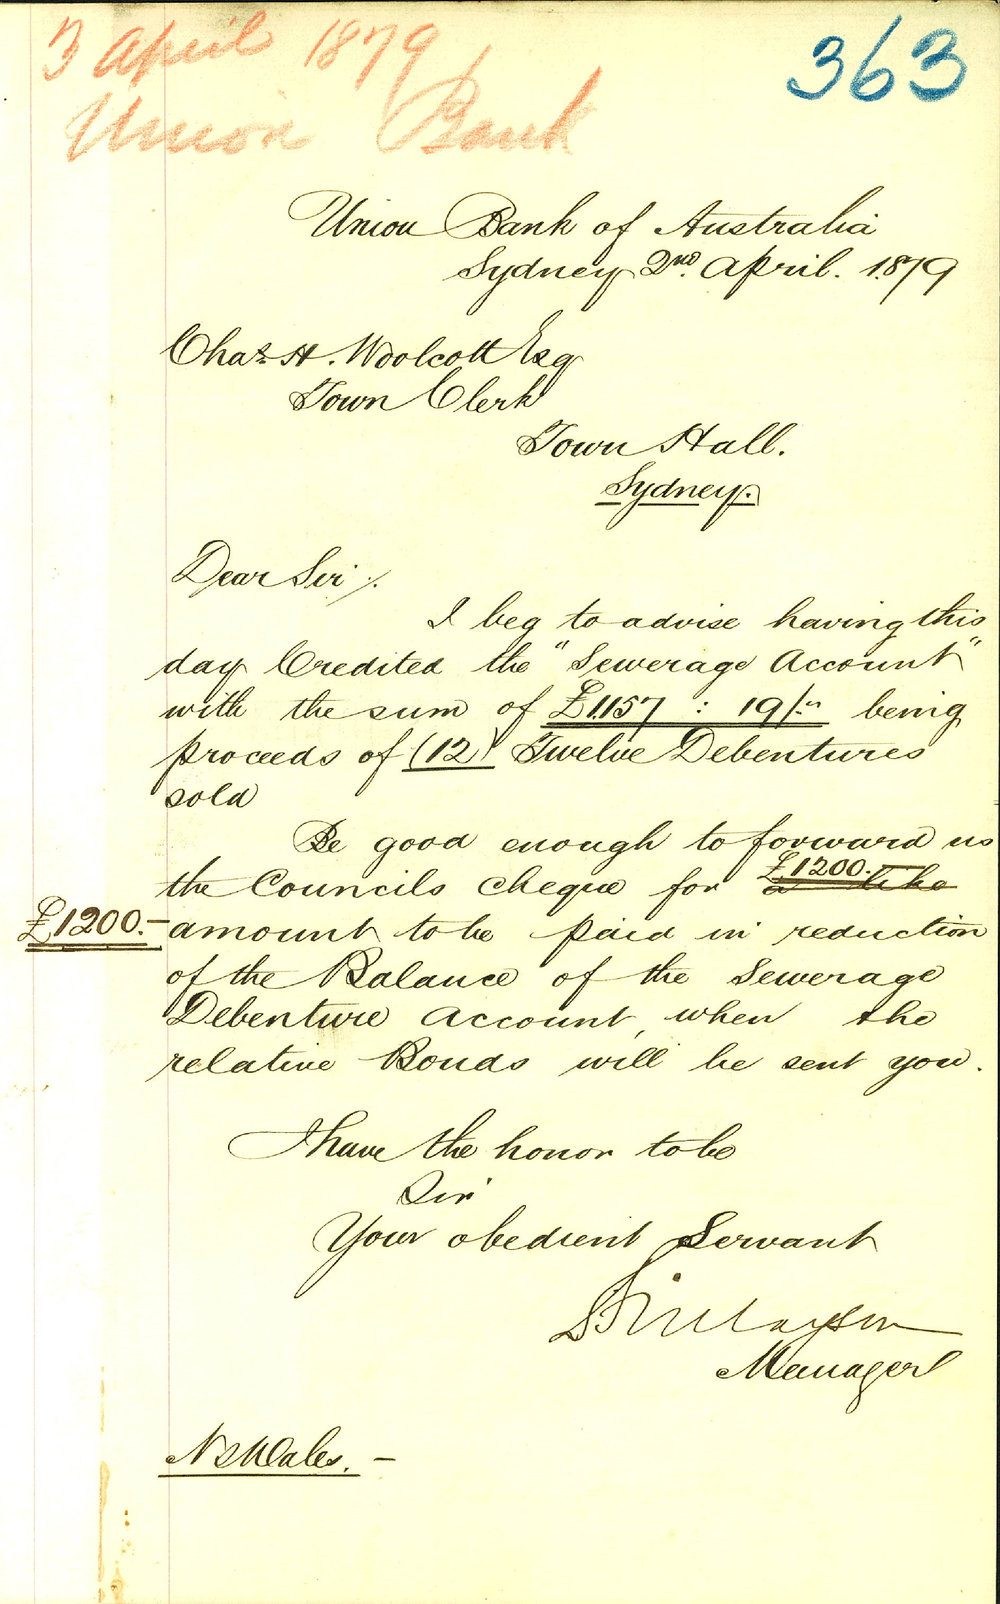 3 April 1879
Union Bank
363
Union Bank of Australia
Sydney 2nd. April. 1879
Chas. H. Woolcott Esq
Town Clerk
Town Hall.
Sydney.
Dear Sir /.
I beg to advise having this
day Credited the "Sewerage Account"
with the sum of £1,157 : 19/- being
proceeds of (12) Twelve Debentures
sold
Be good enough to forward us
the Councils cheque for £1200.- a like
£1200.- amount to be paid in reduction
of the Balance of the Sewerage
Debenture Account, when the
relative Bonds will be sent you.
I have the honor to be
Sir
Your obedient Servant
Manager
N S Wales. -